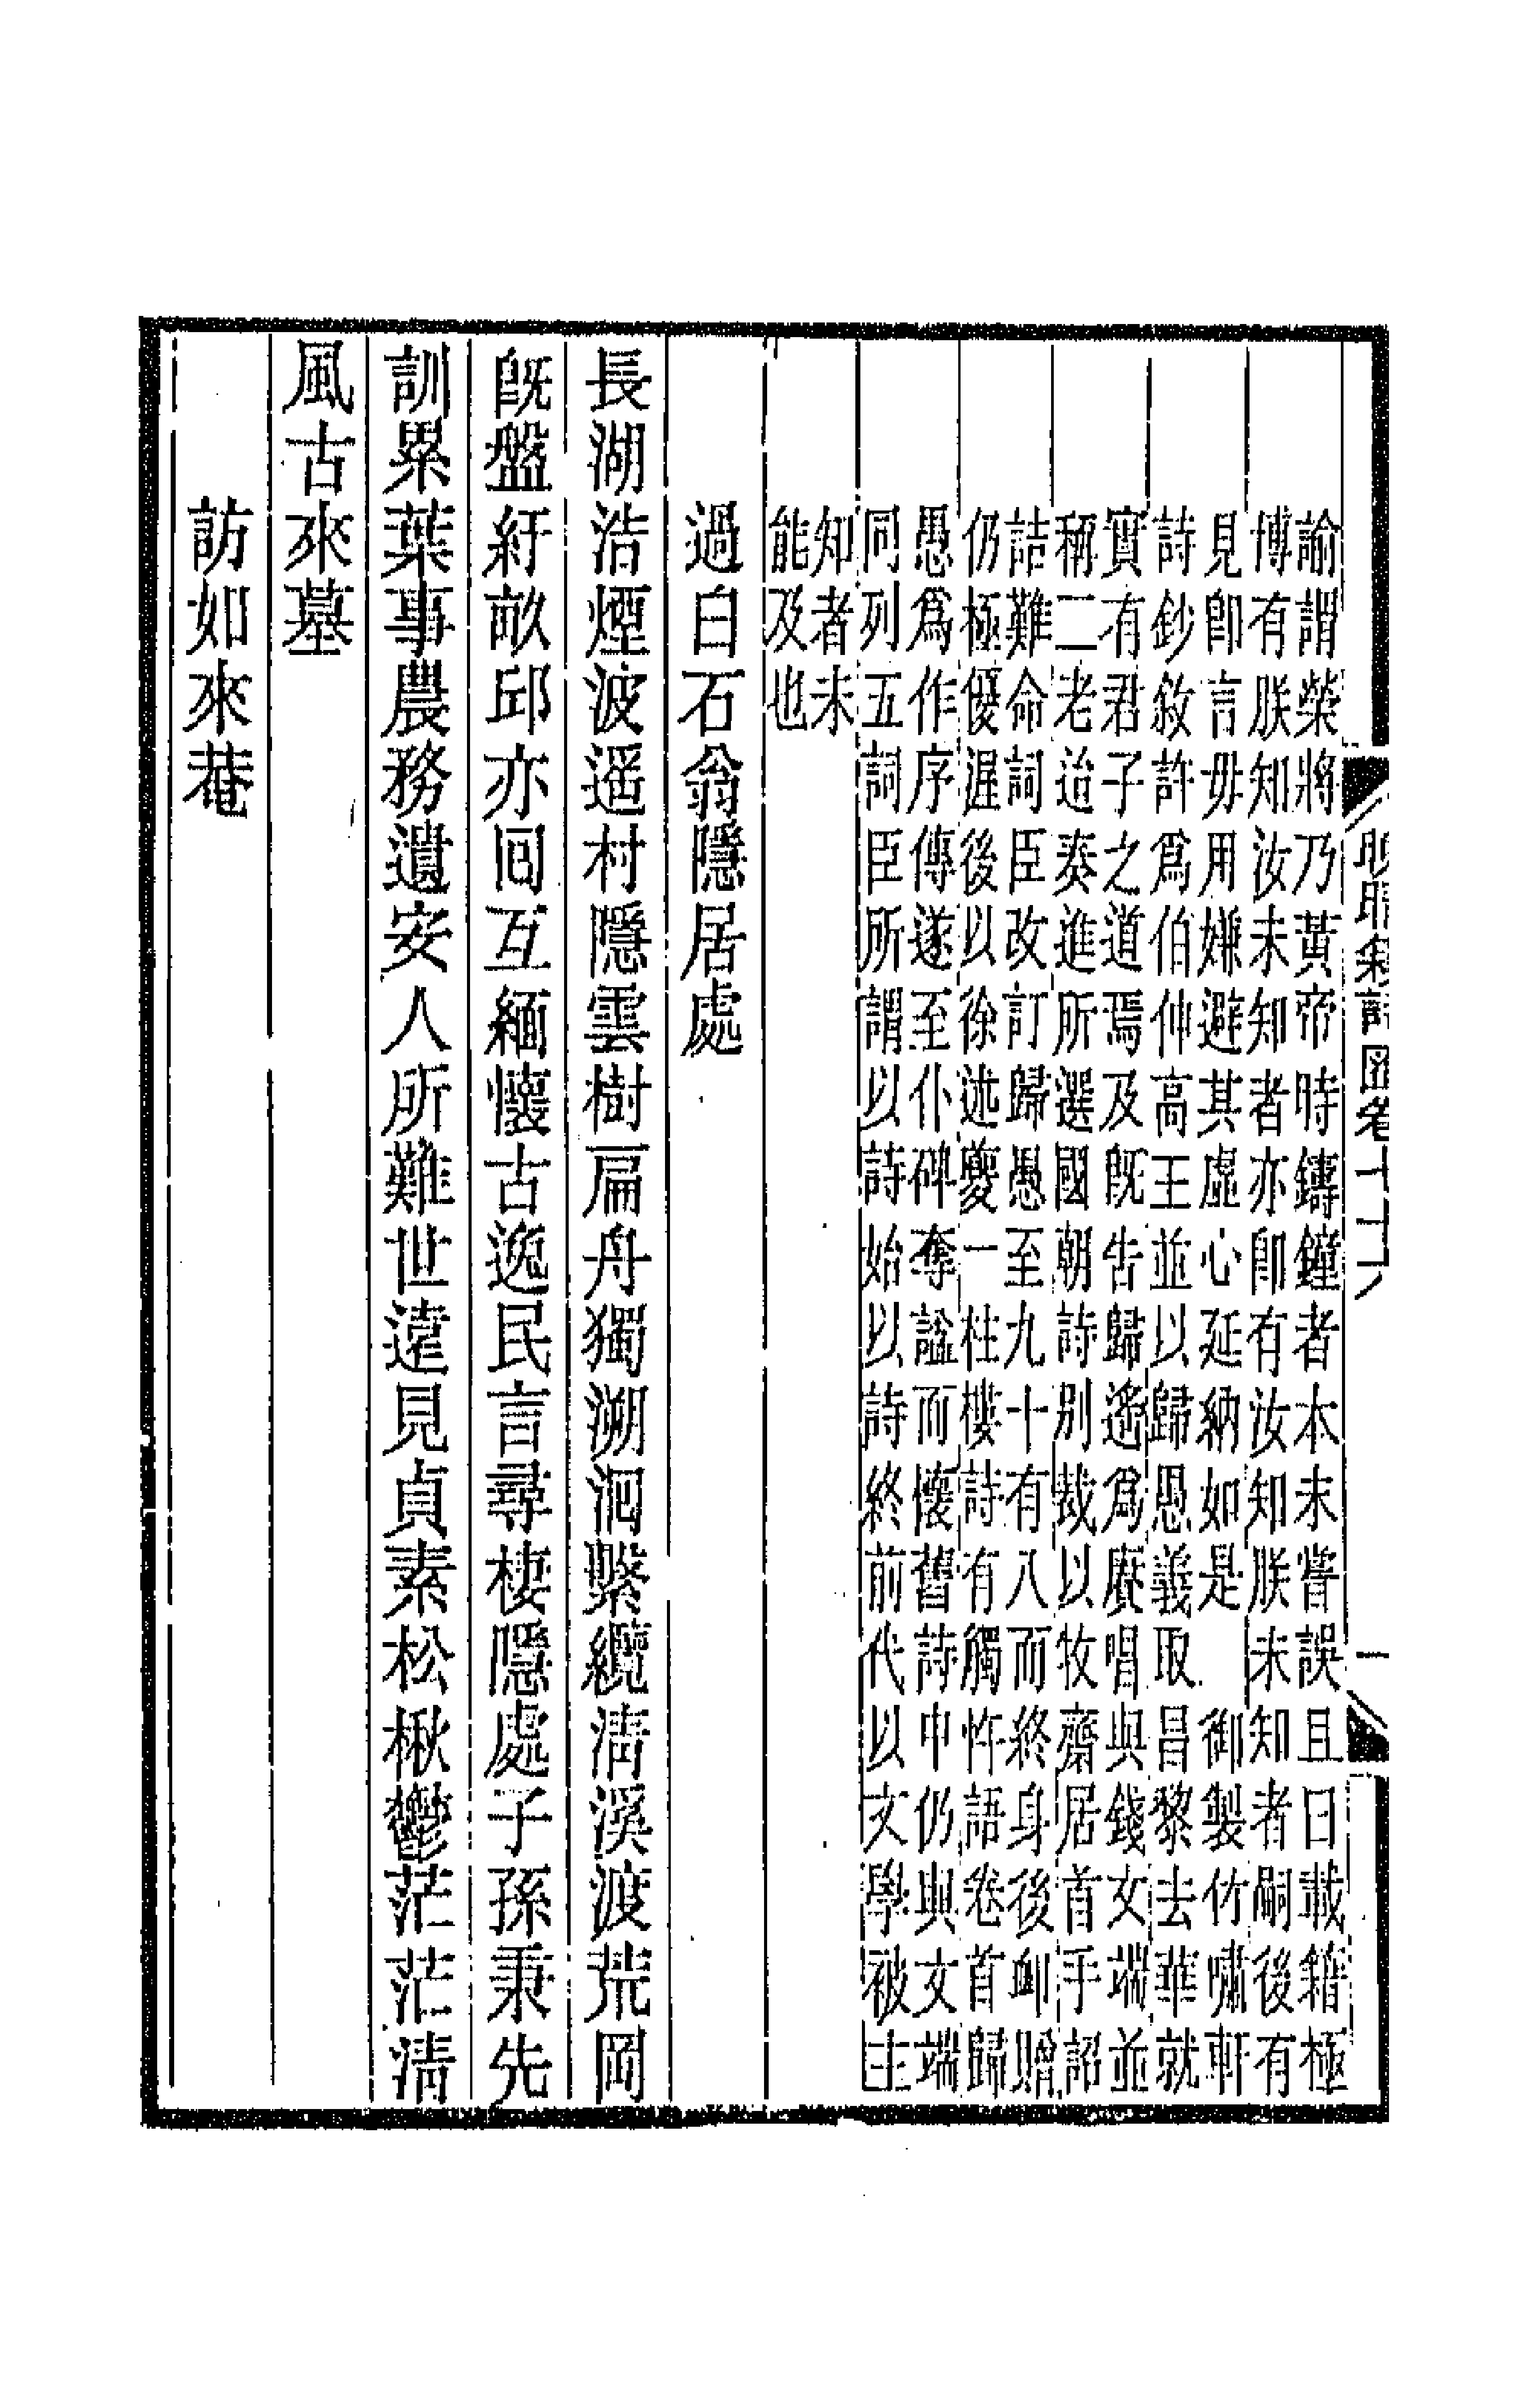 晚晴簃詩匯卷七十六　一
諭謂榮將乃黃帝時鑄鐘者本未嘗誤且曰載籍極
博有朕知汝未知者亦卽有汝知朕未知者嗣後有
見卽言毋用嫌避其虛心延納如是　御製竹嘯軒
詩鈔敘許爲伯仲高王並以歸愚義取昌黎去華就
實有君子之道焉及旣告歸遙爲賡唱與錢文端並
稱二老迨奏進所選國朝詩別裁以牧齋居首手詔
詰難命詞臣改訂歸愚至九十有八而終身後卹贈
仍極優渥後以徐述夔一柱樓詩有觸忤語卷首歸
愚爲作序傳遂至仆碑奪諡而懷舊詩中仍與文端
同列五詞臣所謂以詩始以詩終前代以文學被主
知者未
能及也
過白石翁隱居處
長湖浩煙波遥村隱雲樹扁舟獨溯洄繫纜淸溪渡荒岡
旣盤紆畝邱亦囘互緬懷古逸民言尋棲隱處子孫秉先
訓累葉事農務遺安人所難世遠見貞素松楸鬱茫茫淸
風古來墓
訪如來菴